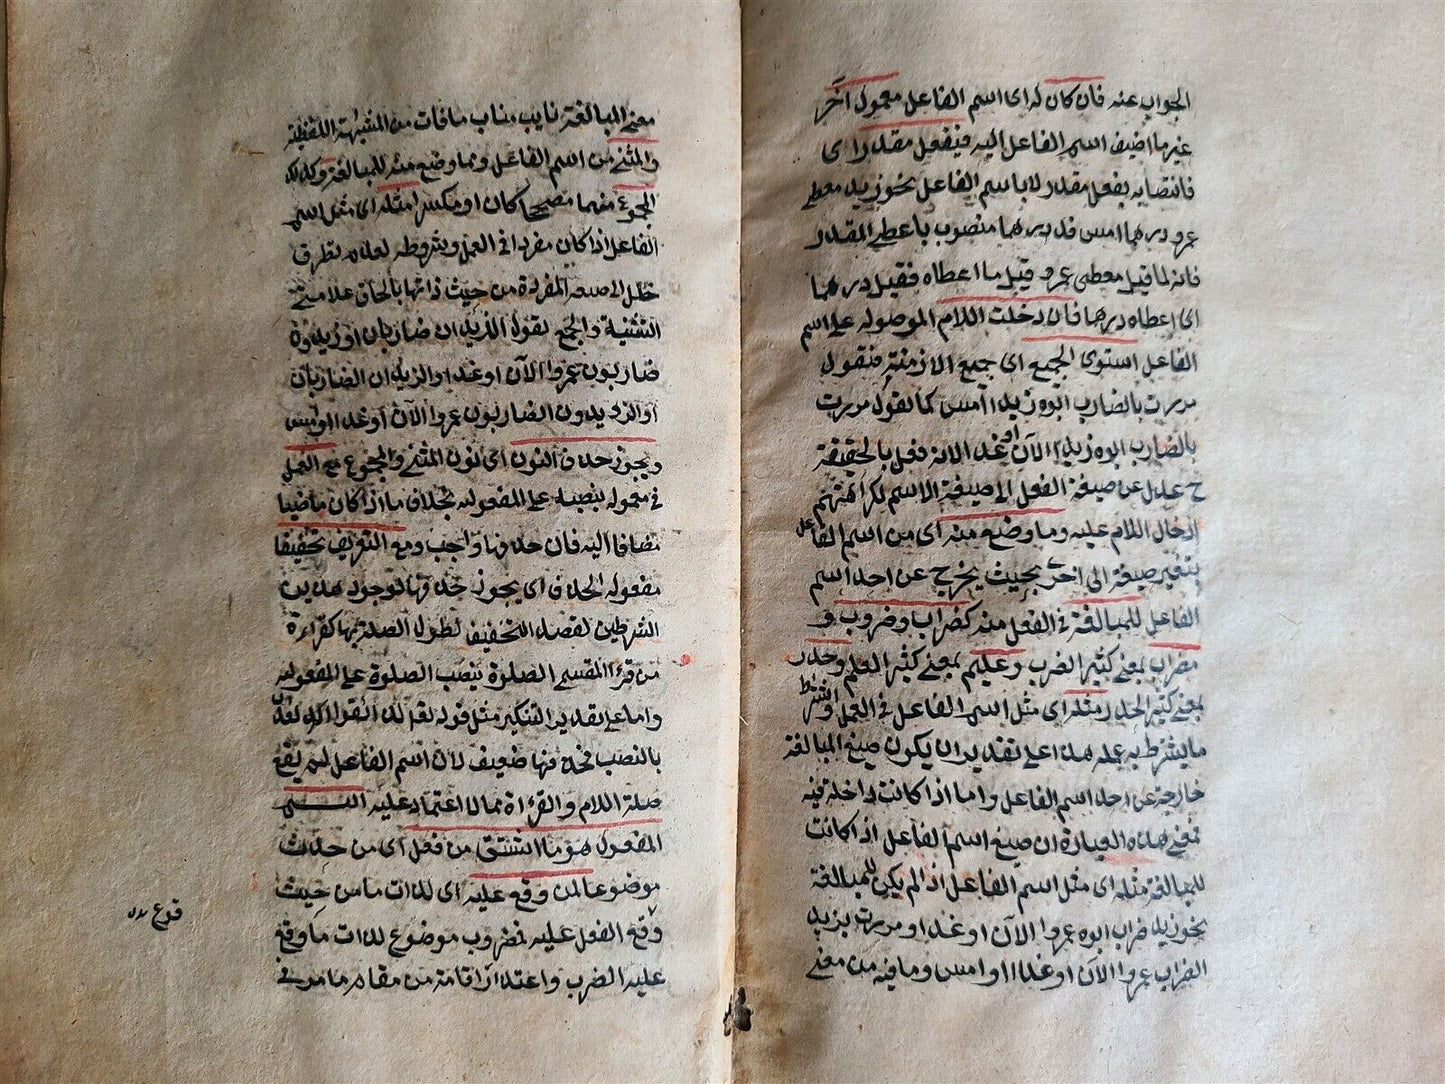 الجواب عنه فان كان له اى اسم الفاعل معمول آخر
غير ما اضيف اسم الفاعل اليه فبفعل مقدر اى
فانتصابه بفعل مقدر لا باسم الفاعل نحو زيد معطى
عمرو درهما امس فدرهما منصوب باعطى المقدر
فانه لما قيل معطى عمرو قيل ما اعطاه فقيل درهما
اى اعطاه درهما فان دخلت اللام الموصولة على اسم
الفاعل استوى الجميع اى جميع الازمنة فتقول
مررت بالضارب ابوه زيدا امس كما تقول مررت
بالضارب ابوه زيدا الآن او غدا لانه فعل بالحقيقة
ح عدل عن صيغة الفعل الى صيغة الاسم لكراهتهم
ادخال اللام عليه وما وضع منه اى من اسم الفاعل
بتغير صيغة الى اخرى بحيث يخرج عن احد اسم
الفاعل للمبالغة فى الفعل منه كضراب وضروب و
مضراب بمعنى كثير الضرب وعليم بمعنى كثير العلم وحذر
بمعنى كثير الحذر مثله اى مثل اسم الفاعل فى العمل واشتراط
ما يشترط به عمله هذا على تقدير ان يكون صيغ المبالغة
خارجة عن احد اسم الفاعل واما اذا كانت داخلة فيه
فمعنى هذه العبارة ان صيغ اسم الفاعل اذا كانت
للمبالغة مثله اى مثل اسم الفاعل اذا لم يكن للمبالغة
نحو زيد ضراب ابوه عمروا الآن او غدا و مررت بزيد
الضراب عمروا الآن او غدا او امس وما فيه من معنى
معنى المبالغة نايب مناب ما فات من المشابهة اللفظية
والمثنى من اسم الفاعل ومما وضع منه للمبالغة وكذلك
المجموع منهما مصححا كان او مكسرا مثله اى مثل اسم
الفاعل اذا كان مفردا فى العمل وشروطه لعدم تطرق
خلل الى صيغة المفردة من حيث ذاتها بالحاق علامتى
التثنية والجمع تقول الزيدان ضاربان او زيدون
ضاربون عمروا الآن او غدا والزيدان الضاربان
او الزيدون الضاربون عمروا الآن او غدا او امس
ويجوز حذف النون اى نون المثنى والمجموع مع العمل
فى معموله بنصبه على المفعوليه بخلاف ما اذا كان ماضيا
مضافا اليه فان حذفها واجب ومع التعريف تخفيفا
مفعوله الحذف اى يجوز حذفها لوجود هذين
الشرطين لقصد التخفيف لطول الصلة بها كقراءة
من قرء المقيمى الصلوة بنصب الصلوة على المفعوليه
واما على تقدير التنكير مثل قوله تعالى لذائقوا
بالنصب فحذفها ضعيف لان اسم الفاعل لم يقع
صلة اللام والقراءة مما لا اعتماد عليه اسم
المفعول هو ما اشتق من فعل اى من حدث
موضوعا لمن وقع عليه اى لذات ما من حيث
وقع الفعل عليه فمضروب موضوع لذات ما وقع
عليه الضرب واعتذار اقامة من مقام ما مر فى
فرع